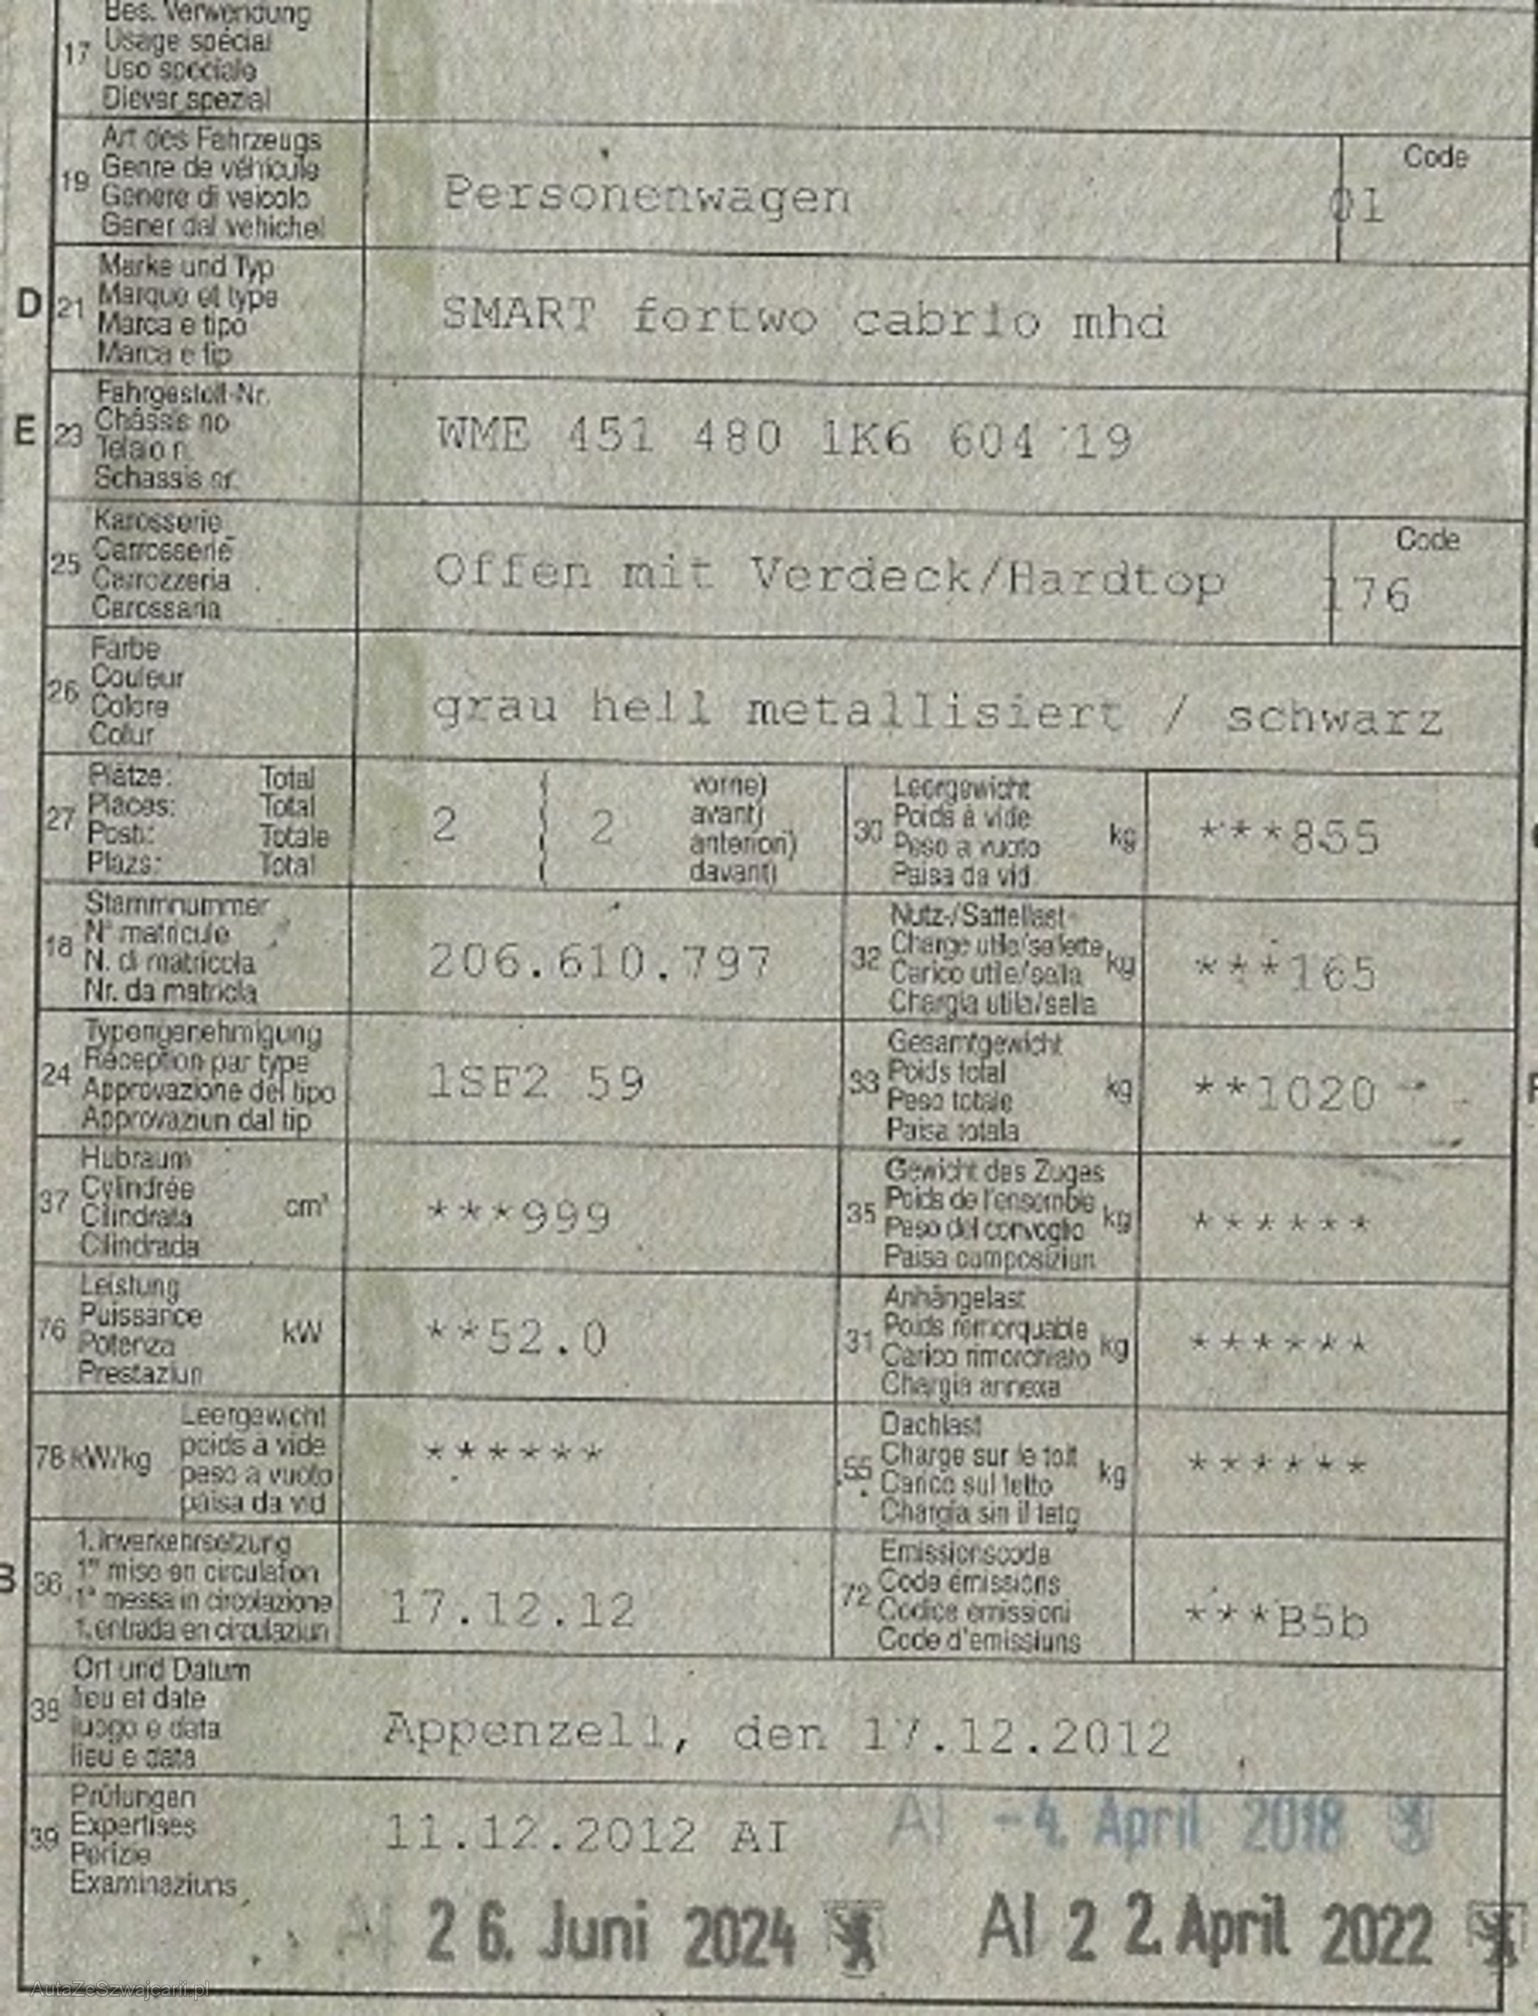 Bes. Verwendung
17 Usage spécial
Uso speciale
Diever spezial
Art des Fahrzeugs
19 Genre de véhicule
Genere di veicolo
Gener dal vehichel
Personenwagen
Code
01
D 21 Marke und Typ
Marque et type
Marca e tipo
Marca e tip
SMART fortwo cabrio mhd
E 23 Fahrgestell-Nr.
Châssis no
Telaio n.
Schassis nr.
WME 451 480 1K6 604 19
25 Karosserie
Carrosserie
Carrozzeria
Carossaria
Offen mit Verdeck/Hardtop
Code
176
26 Farbe
Couleur
Colore
Colur
grau hell metallisiert / schwarz
27 Plätze: Total
Places: Total
Posti: Totale
Plazs: Total
2 2
vorne)
avant)
anteriori)
davant)
30 Leergewicht
Poids à vide
Peso a vuoto
Paisa da vid
kg
***855
18 Stammnummer
N° matricule
N. di matricola
Nr. da matricla
206.610.797
32 Nutz-/Sattellast
Charge utile/sellette
Carico utile/sella
Chargia utila/sella
kg
***165
24 Typengenehmigung
Réception par type
Approvazione del tipo
Approvaziun dal tip
1SF2 59
33 Gesamtgewicht
Poids total
Peso totale
Paisa totala
kg
**1020
37 Hubraum
Cylindrée
Cilindrata
Cilindrada
cm³
***999
35 Gewicht des Zuges
Poids de l'ensemble
Peso del convoglio
Paisa cumposiziun
kg
******
76 Leistung
Puissance
Potenza
Prestaziun
kW
**52.0
31 Anhängelast
Poids remorquable
Carico rimorchiato
Chargia annexa
kg
******
78 kW/kg
Leergewicht
poids à vide
peso a vuoto
paisa da vid
******
55 Dachlast
Charge sur le toit
Carico sul tetto
Chargia sin il tetg
kg
******
B 36 1. Inverkehrsetzung
1re mise en circulation
1a messa in circolazione
1. entrada en circulaziun
17.12.12
72 Emissionscode
Code émissions
Codice emissioni
Code d'emissiuns
***B5b
38 Ort und Datum
lieu et date
luogo e data
lieu e data
Appenzell, den 17.12.2012
39 Prüfungen
Expertises
Perizie
Examinaziuns
11.12.2012 AI
AI -4. April 2018
AI 26. Juni 2024
AI 22. April 2022
AutaZeSzwajcarii.pl